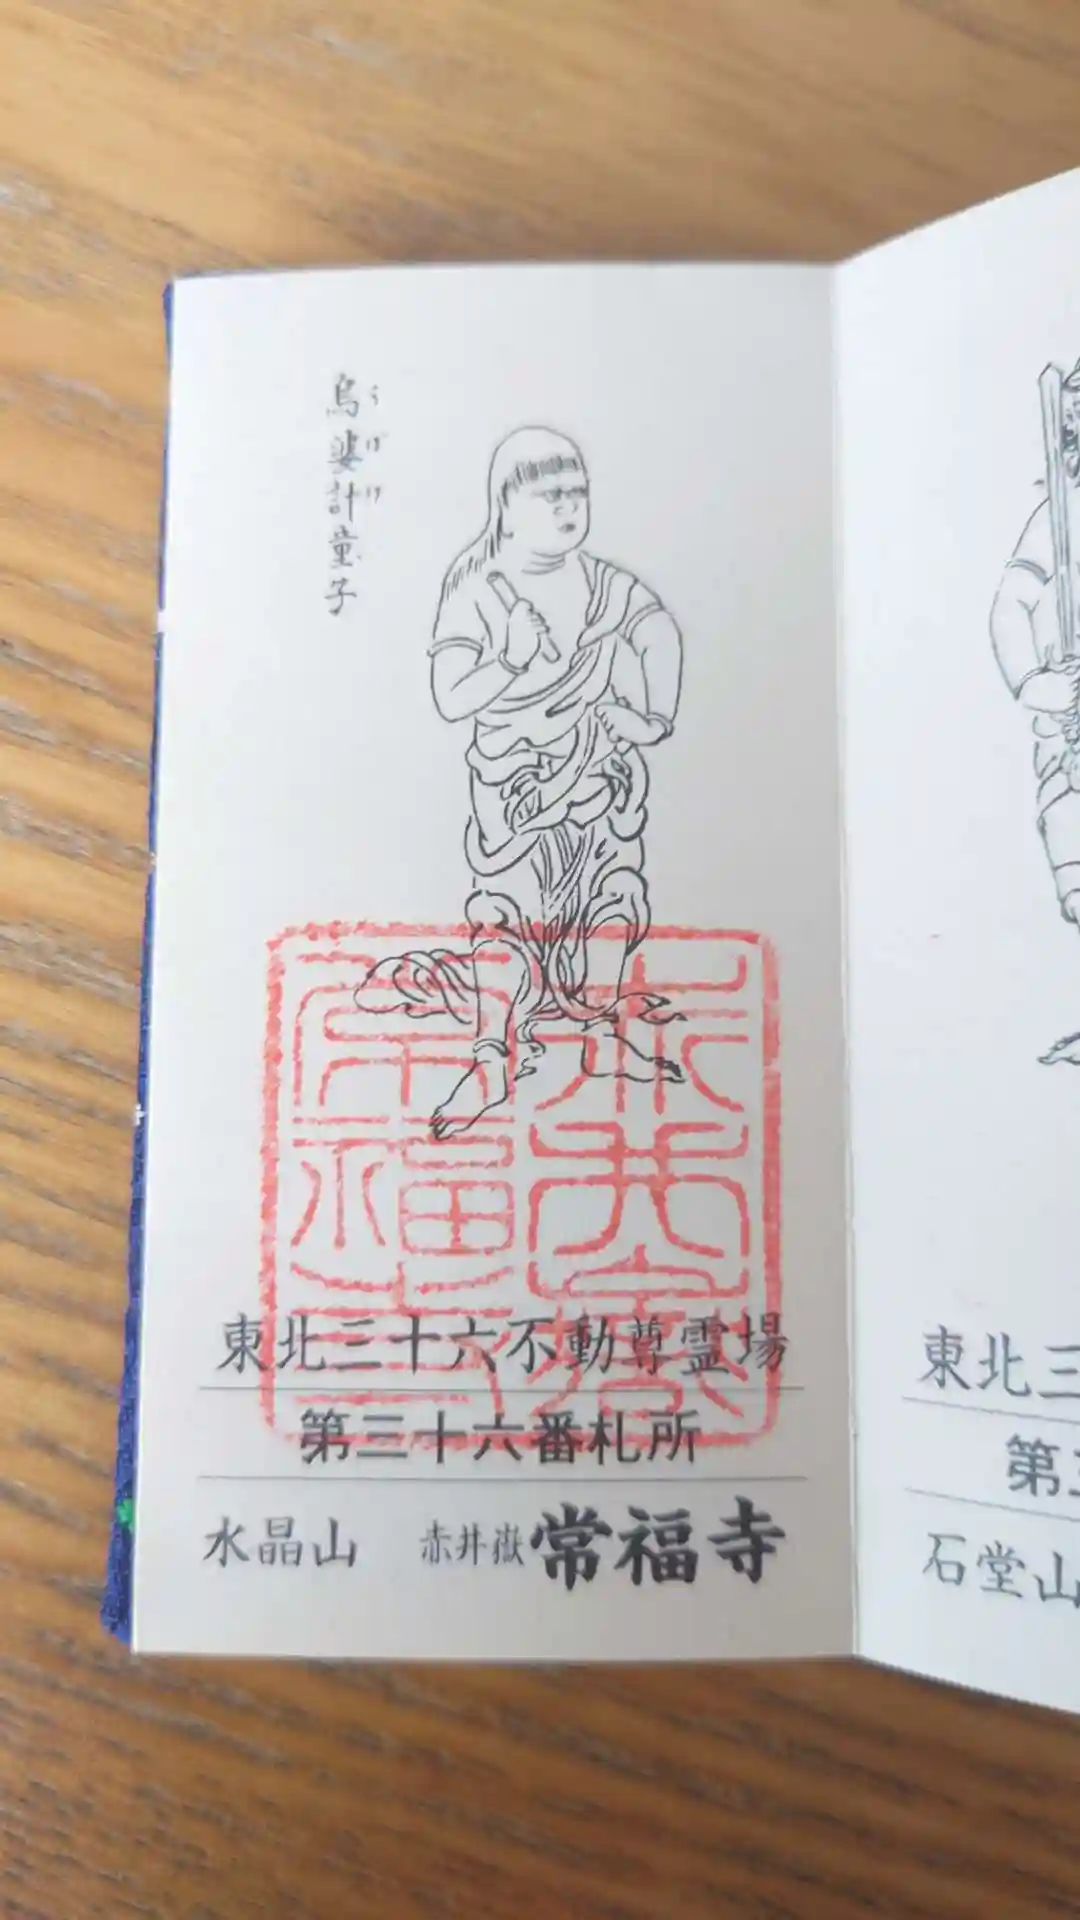 烏婆計童子
うばけ
東北三十六不動尊霊場
第三十六番札所
水晶山 赤井嶽 常福寺
赤井嶽
常福寺
東北三
第三
石堂山